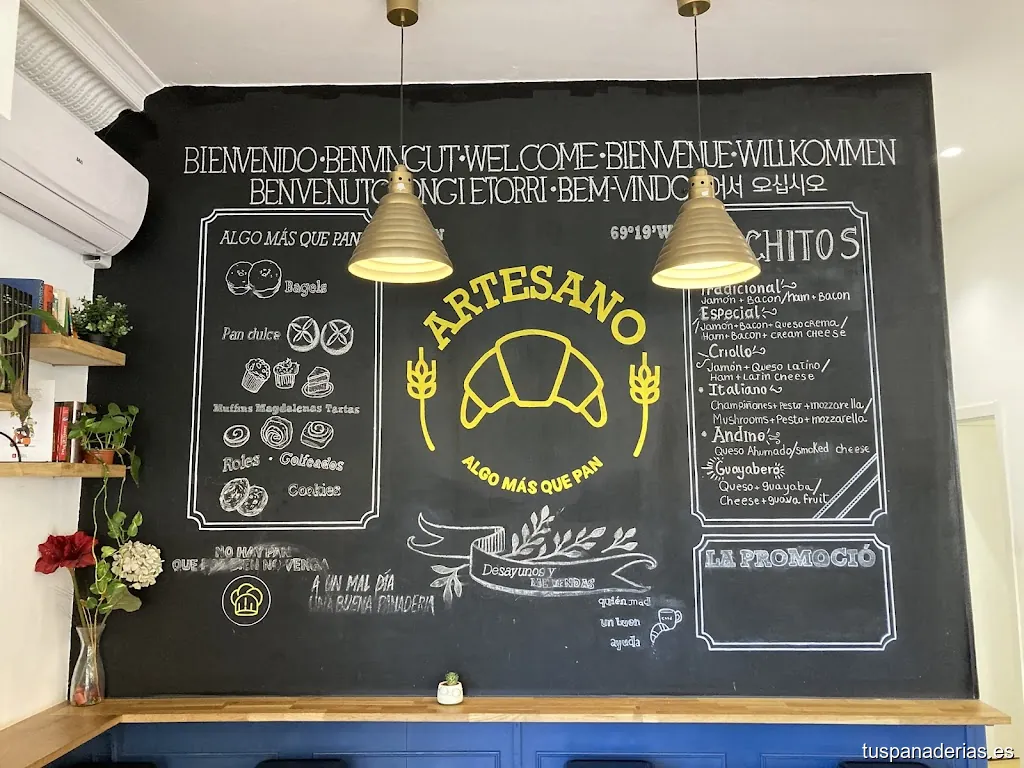 BIENVENIDO·BENVINGUT·WELCOME·BIENVENUE·WILLKOMMEN
BENVENUTO ONGI ETORRI·BEM-VINDO 어서 오십시오
ALGO MÁS QUE PAN
Bagels
Pan dulce
Muffins Magdalenas Tartas
Roles · Golfeados
Cookies
69°19'W
ARTESANO
ALGO MÁS QUE PAN
CHITOS
Tradicional
Jamón + Bacon/Ham + Bacon
Especial
Jamón+Bacon+Queso crema/
Ham+Bacon+cream cheese
Criollo
Jamón + Queso Latino/
Ham + Latin cheese
• Italiano
Champiñones+Pesto+mozzarella/
Mushrooms+Pesto+mozzarella
• Andino
Queso Ahumado/Smoked cheese
Guayabero
Queso + guayaba/
Cheese + guava fruit
LA PROMOCIÓ
NO HAY PAN
QUE POR BIEN NO VENGA
A UN MAL DÍA
UNA BUENA PANADERIA
Desayunos y
MERIENDAS
quien mad
un buen
ayuda
tuspanaderias.es